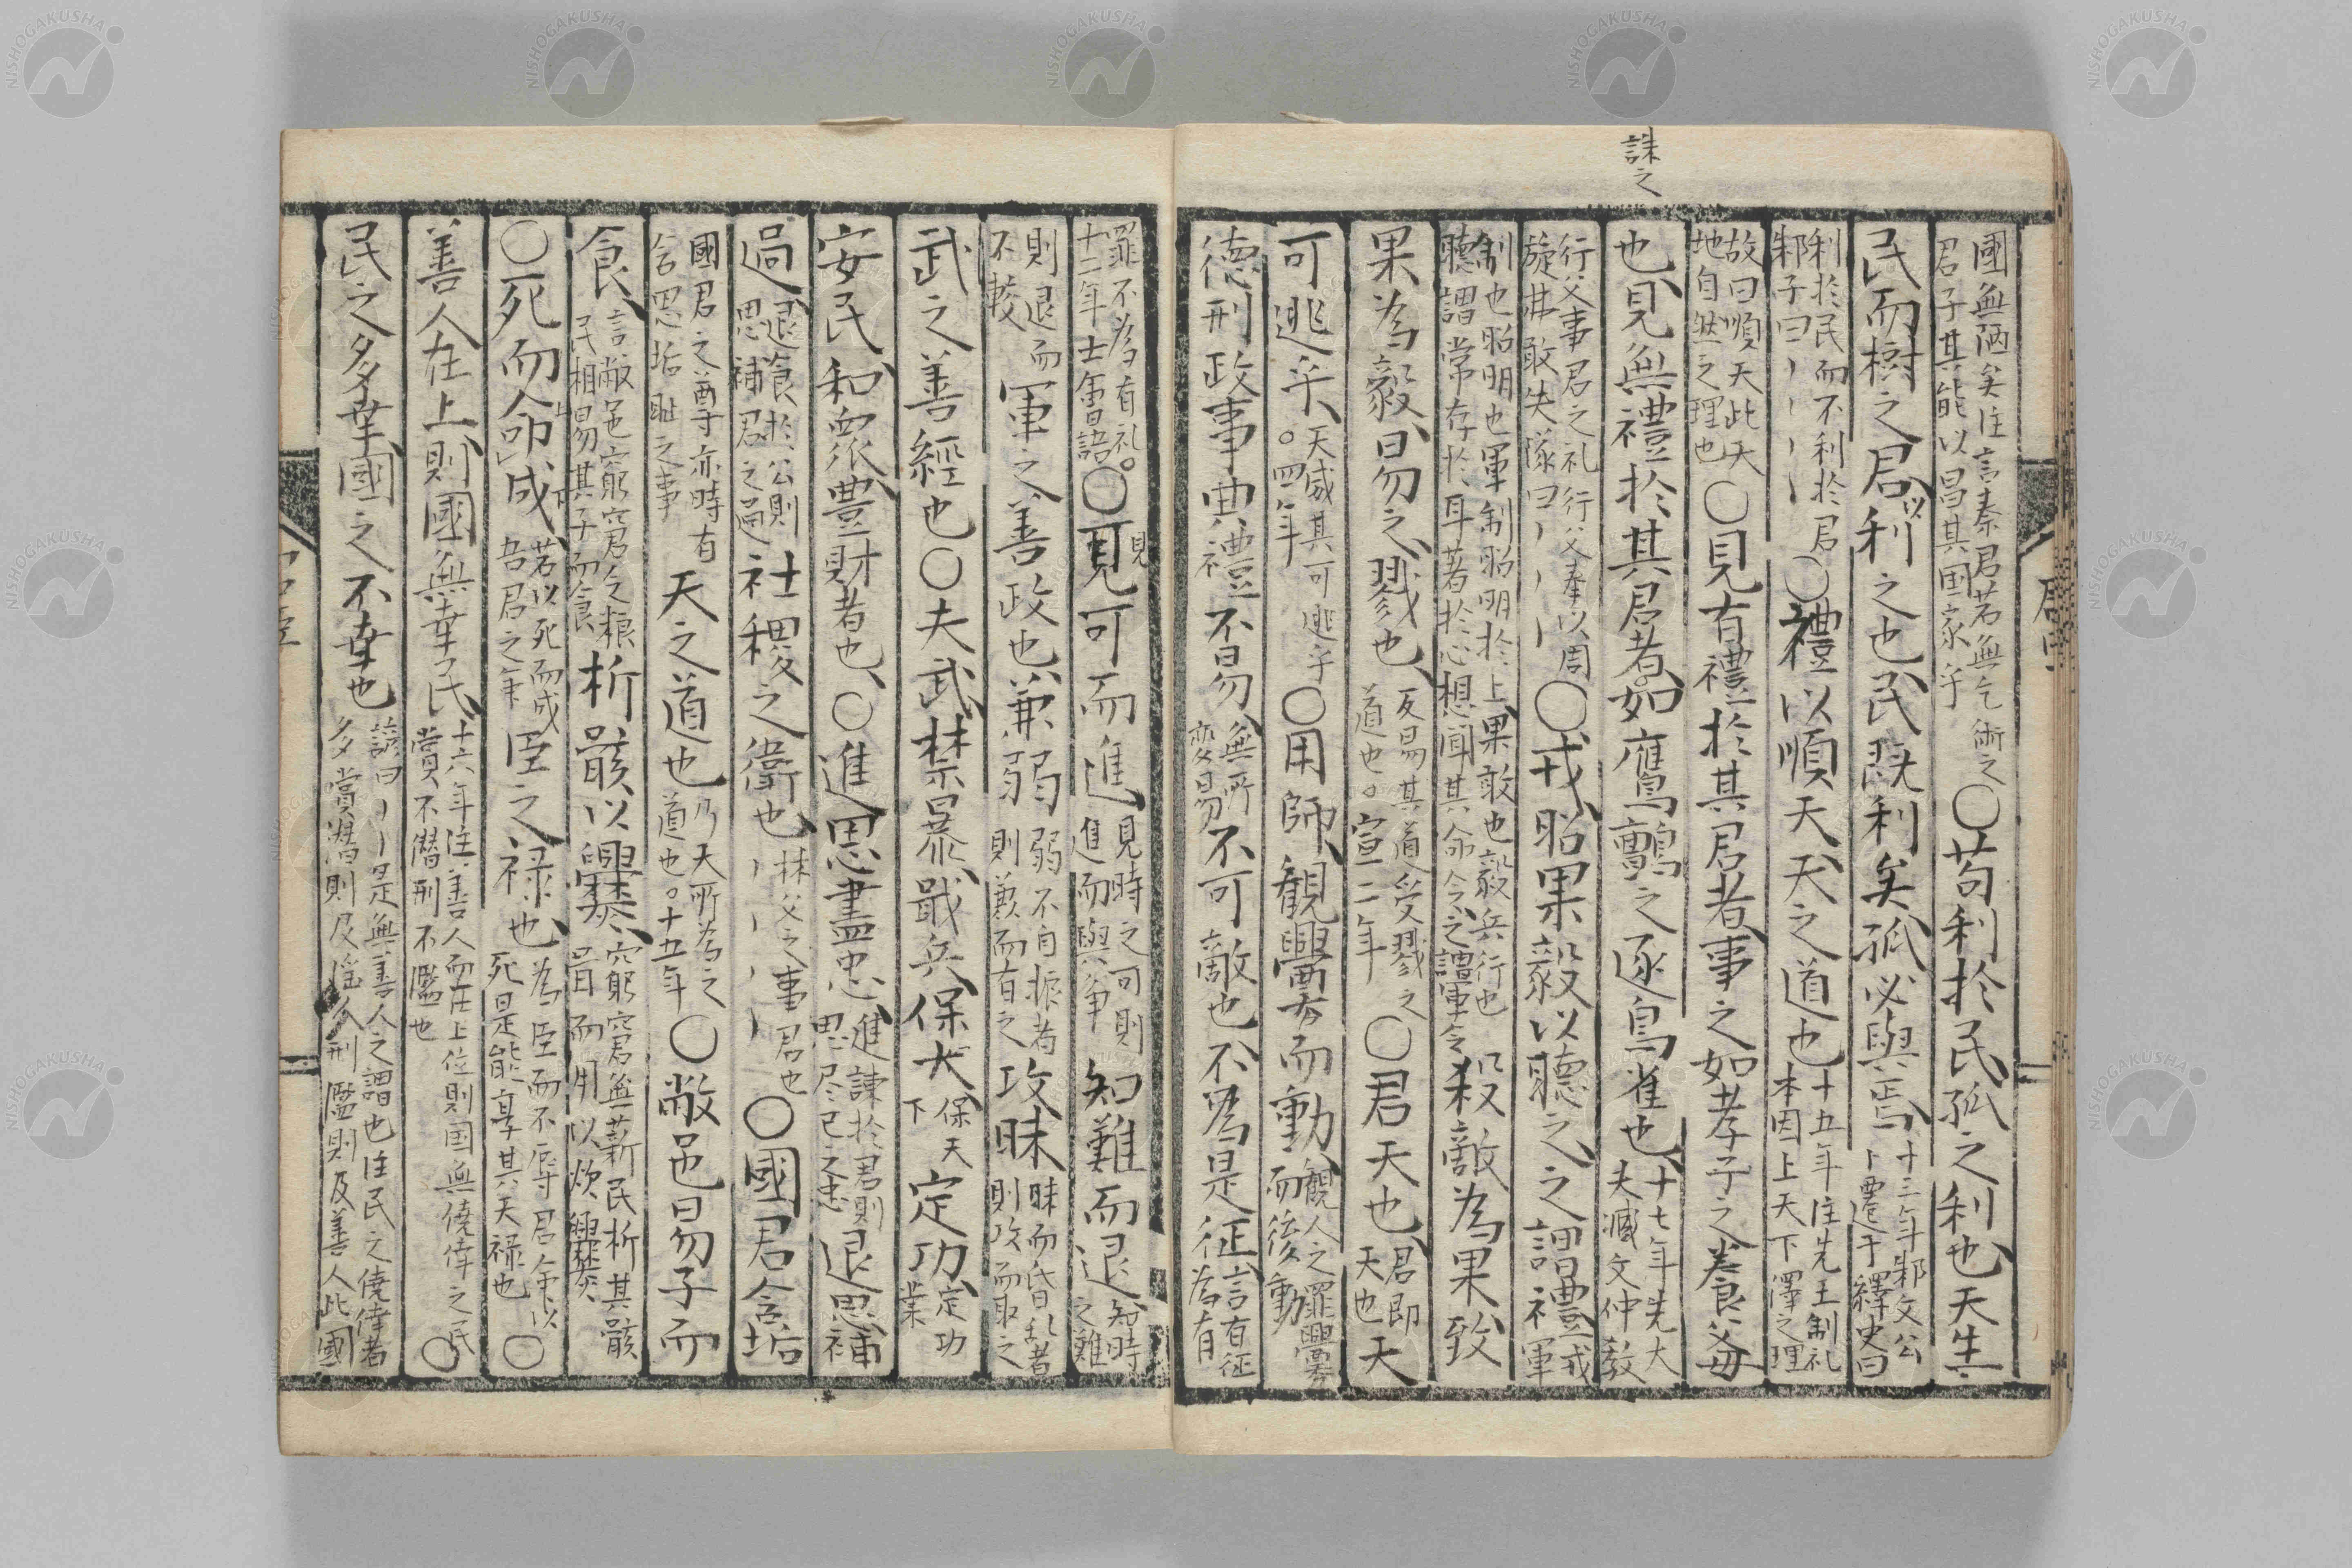 誅之
國無陋矣注言秦君若無乞術之
君子其能以昌其国家乎
〇苟利於民孤之利也天生
民而樹之君以利之也民既利矣孤必與焉
十三年邾文公
卜遷于繹史曰
利於民而不利於君
邾子曰
〇禮以順天天之道也
十五年注先王制礼
本因上天下澤之理
故曰順天此天
地自然之理也
〇見有禮於其君者事之如孝子之養父母
也見無禮於其君者如鷹鸇之逐鳥雀也
十七年先大
夫臧文仲教
行父事君之礼行父奉以周
旋弗敢失隊曰
〇戎昭果毅以聽之之謂禮
戎
軍
制也昭明也軍制昭明於上果敢也毅兵行也
聽謂常存於耳著於心想聞其命令之謂軍令
殺敵為果致
果為毅易之戮也
反易其道受戮之
道也。宣二年
〇君天也
君即
天也
天
可逃乎
天威其可逃乎
。四年
〇用師觀釁而動
觀人之罪釁
而後動
德刑政事典禮不易
無所
變易
不可敵也不為是征
言有征
為有
罪不為有礼。
十二年士會語
〇見可而進
見時之可則
進而與爭
知難而退
知時
之難
則退而
不較
軍之善政也兼弱
弱不自振者
則兼而有之
攻昧
昧而昏乱者
則攻而取之
武之善經也〇夫武禁暴戢兵保大
保天
下
定功
定功
業
安民和眾豐財者也〇進思盡忠
進諫於君則
思尽己之忠
退思補
過
退食於公則
思補君之過
社稷之衛也
林父之事君也
〇國君含垢
國君之尊亦時有
含思垢耻之事
天之道也
乃天所為之
道也。十五年
〇敝邑易子而
食
言敝邑窮窘乏粮
民相易其子而食
析骸以爨
窮窘無薪民析其骸
骨而用以炊爨
〇死而命成
若以死而成
吾君之命
臣之祿也
為臣而不辱君命以
死是能享其天祿也
〇
善人在上則國無幸民
十六年注善人而在上位則国無僥倖之民
賞不僭刑不濫也
〇
民之多幸國之不幸也
諺曰是無善人之謂也注民之僥倖者
多賞僭則及淫人刑濫則及善人此國